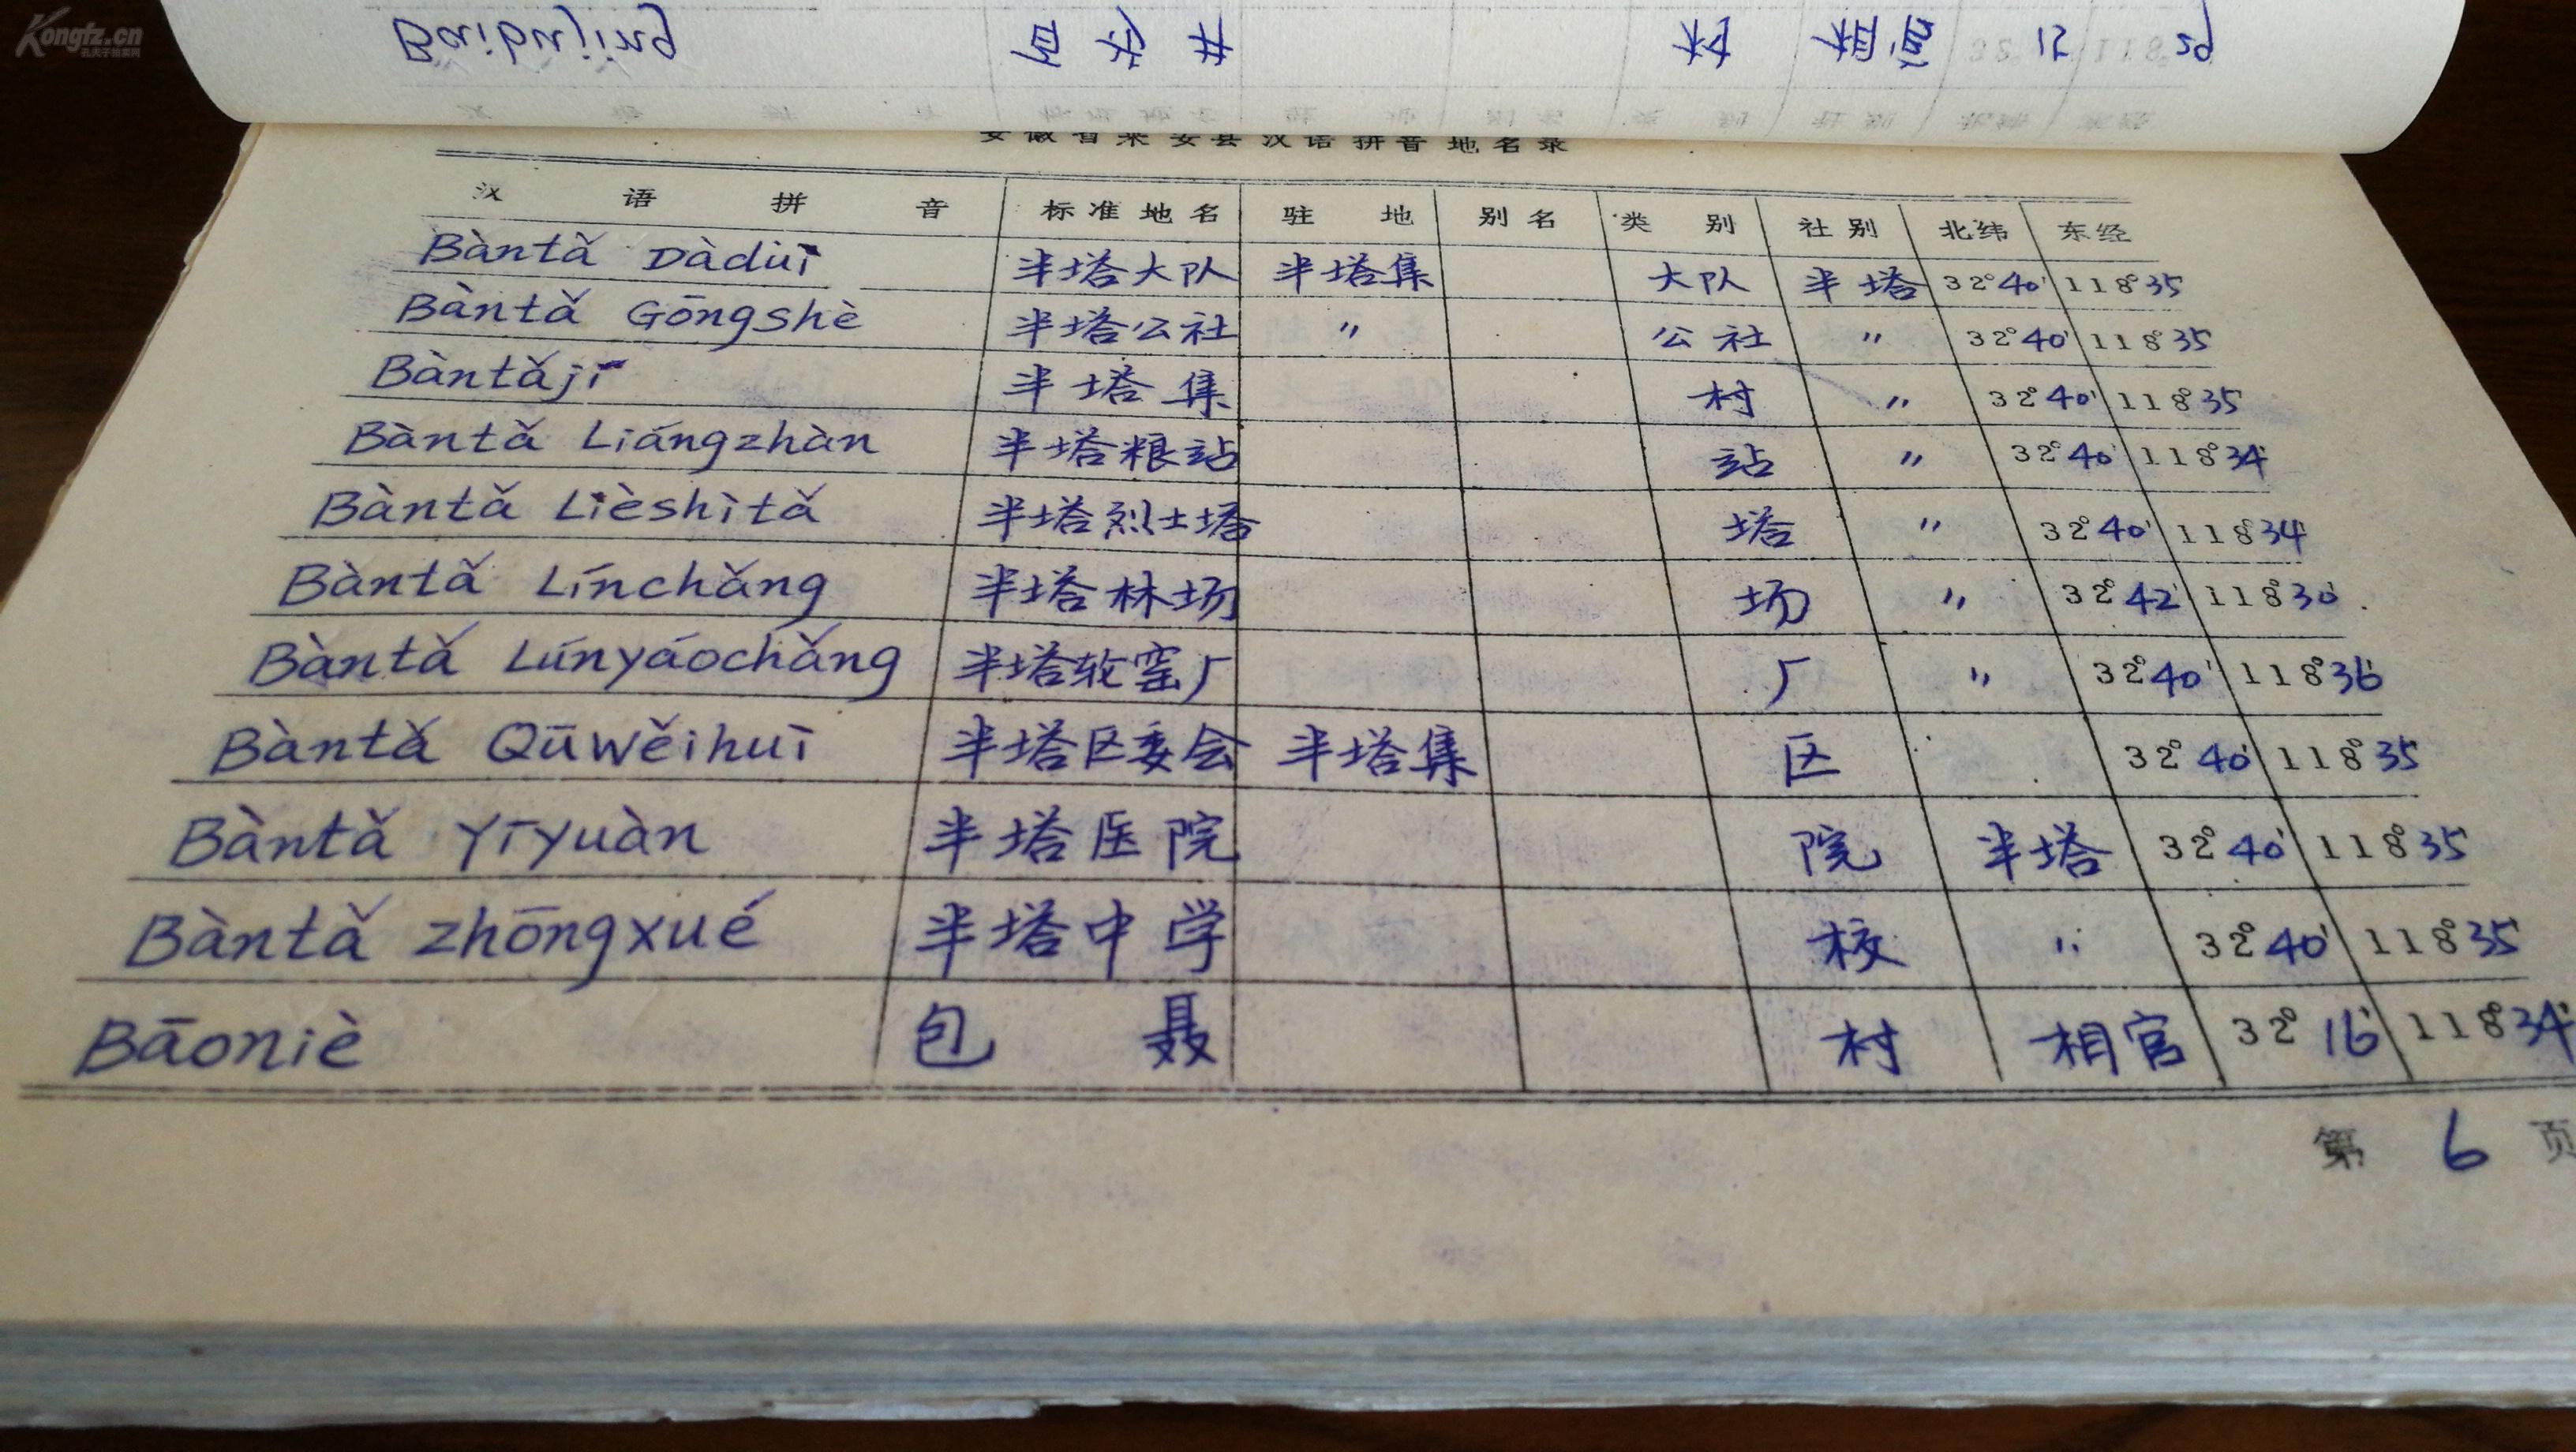 Kongfz.cn
孔夫子拍卖网
Baibujing 百步井 村 相官 15 29
安徽省来安县汉语拼音地名录
汉语拼音 标准地名 驻地 别名 类别 社别 北纬 东经
Bàntǎ Dàduì 半塔大队 半塔集 大队 半塔 32°40' 118°35
Bàntǎ Gōngshè 半塔公社 〃 公社 〃 32°40' 118°35
Bàntǎjí 半塔集 村 〃 32°40' 118°35
Bàntǎ Liángzhàn 半塔粮站 站 〃 32°40' 118°34'
Bàntǎ Lièshìtǎ 半塔烈士塔 塔 〃 32°40' 118°34'
Bàntǎ Línchǎng 半塔林场 场 〃 32°42' 118°30'
Bàntǎ Lúnyáochǎng 半塔轮窑厂 厂 〃 32°40' 118°36'
Bàntǎ Qūwěihuì 半塔区委会 半塔集 区 32°40' 118°35'
Bàntǎ Yīyuàn 半塔医院 院 半塔 32°40' 118°35'
Bàntǎ zhōngxué 半塔中学 校 〃 32°40' 118°35'
Bāoniè 包聂 村 相官 32°16' 118°34'
第 6 页